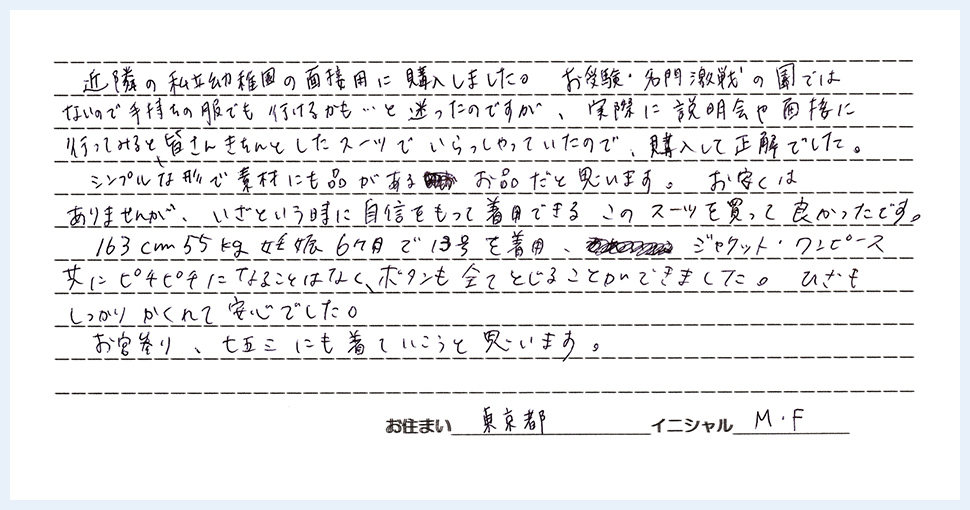 近隣の私立幼稚園の面接用に購入しました。 お受験・名門激戦の園では
ないので手持ちの服でも行けるかも…と迷ったのですが、実際に説明会や面接に
行ってみると皆さんきちんとしたスーツでいらっしゃっていたので、購入して正解でした。
シンプルな形で素材にも品がある お品だと思います。 お安くは
ありませんが、いざという時に自信をもって着用できるこのスーツを買って良かったです。
163cm 55kg 妊娠6ヶ月で13号を着用、 ジャケット・ワンピース
共にピチピチになることはなく、ボタンも全てとじることができました。 ひざも
しっかりかくれて安心でした。
お宮参り、七五三にも着ていこうと思います。
お住まい 東京都 イニシャル M・F